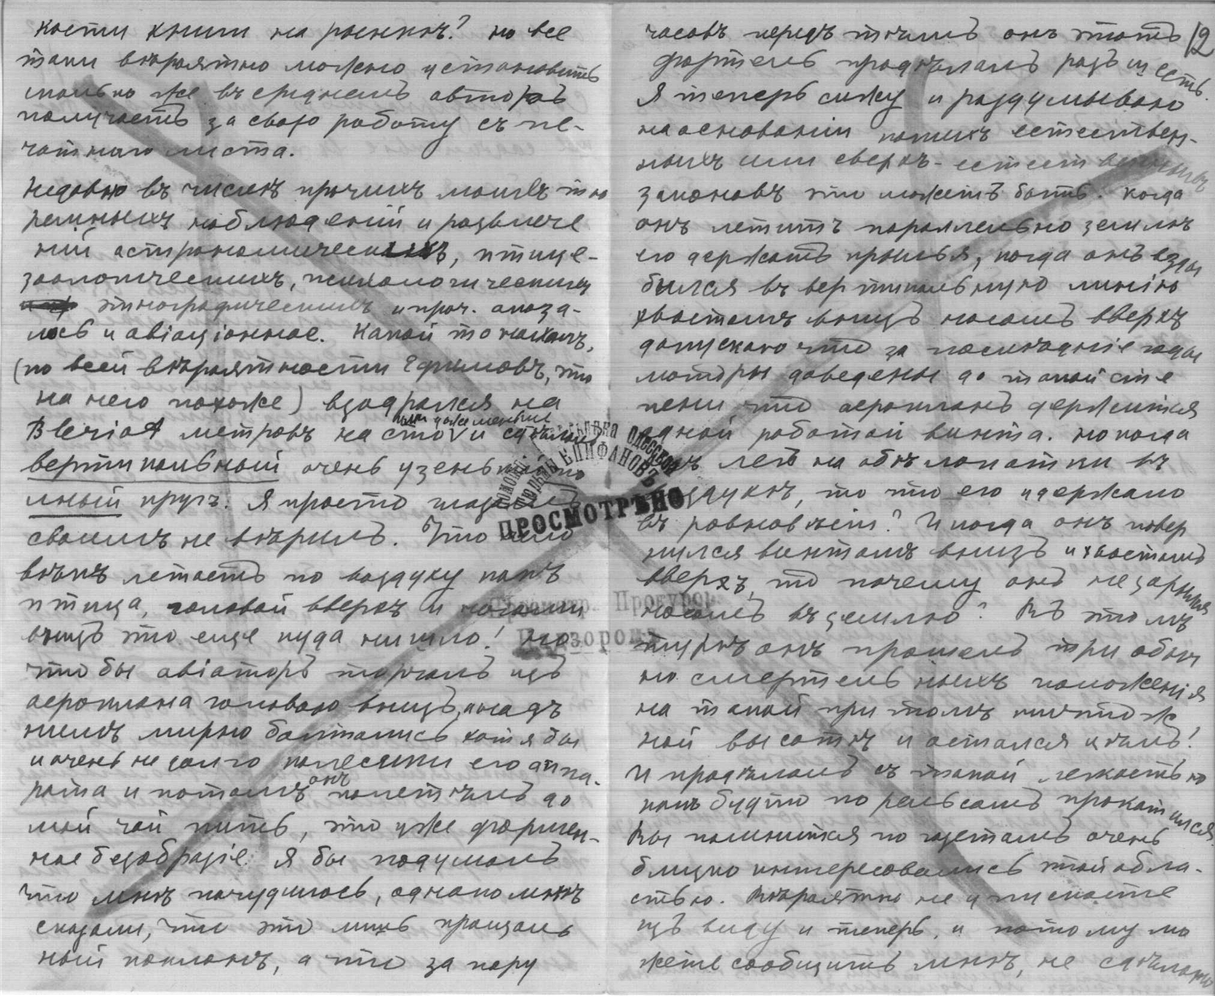 кости книги на рынкѣ? но все
таки вѣроятно можно установить
сколько же въ среднемъ авторъ
получаетъ за свою работу съ пе-
чатнаго листа.
Недавно въ числѣ прочихъ моихъ тю
ремныхъ наблюденій и развлече
ній астрономическихъ, птице-
зоологическихъ, психологическихъ
этнографическихъ и проч. оказа-
лось и авіаціонное. Какой то нахалъ,
(по всей вѣроятности Ефимовъ, это
на него похоже) взобрался на
метровъ на сто или даже меньше и сдѣлалъ
вертикальный очень узенькій
круг. Я просто глазамъ
своимъ не вѣрилъ. Что
вѣкъ летаетъ по воздуху какъ
птица, головой вверхъ и ногами
внизъ это еще куда ни шло! Но
что бы авіаторъ торчалъ изъ
аероплана головою внизъ, а надъ
нимъ мирно болтались хотя бы
и очень не долго колесики его аппа-
рата и потомъ онъ полетѣлъ до
мой чай пить, это уже формен-
ное безобразіе. Я бы подумалъ
что мнѣ почудилось, однако мнѣ
сказали, что это лишь прощаль
ный поклонъ, а что за пару
12
часовъ передъ тѣмъ онъ этотъ
фортель продѣлалъ разъ шесть.
Я теперь сижу и раздумываю
на основаніи какихъ естествен-
ныхъ или сверхъ-естественныхъ
законовъ это можетъ быть. Когда
онъ летитъ параллельно землѣ
его держатъ крылья, когда онъ
въ вертикальную линію
хвостомъ внизъ носомъ вверхъ
допускаю что за послѣдніе годы
моторы доведены до такой сте
пени что аеропланъ держится
одной работой винта. Но когда
онъ легъ на обѣ лопатки въ
воздухѣ, то что его удержало
въ равновѣсіи? И когда онъ повер
нулся винтомъ внизъ и хвостомъ
вверхъ, то почему онъ не зарылся
носомъ въ землю? Въ этомъ
турнѣ онъ прошелъ три обыч
но смертельныхъ положенія
на такой при томъ ничтож
ной высотѣ и остался цѣлъ!
И продѣлалъ съ такой легкостью
какъ будто по рельсамъ прокатился.
Вы помнится по газетамъ очень
близко интересовались этой обла-
стью. Вѣроятно не упускаете
изъ виду и теперь, и потому мо
жете сообщить мнѣ, не сдѣлано
ПРОСМОТРѢНО
Прокурор